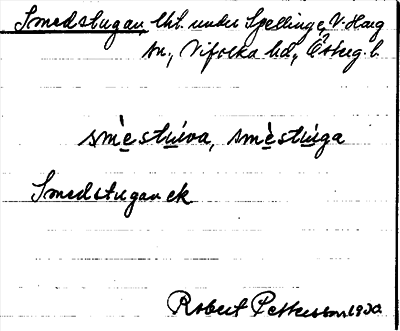 Smedstugan, lht. under Spellinge, V. Harg
sn., Vifolka hd, Östg. l.
smèstúva, smèstúga
Smedstugan ek
Robert Pettersson 1930